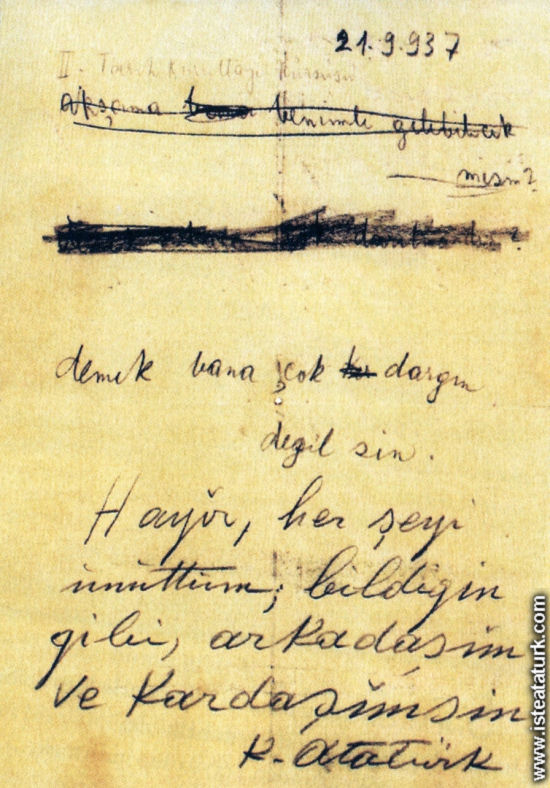 21.9.937
II. Tarih Kurultayı Kürsüsü
akşama bana benimle gelebilecek
misin?
demek bana çok dargın
değil sin.
Hayır, her şeyi
unuttum; bildiğin
gibi, arkadaşım
ve Kardaşımsın
K. Atatürk
www.isteataturk.com